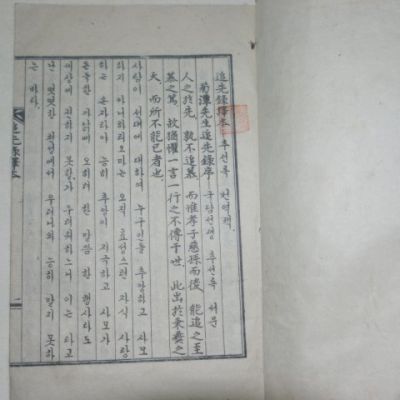 追先錄譯本 추선록 번역책
菊潭先生追先錄序 국담선생 추선록 서문
人之於先 孰不追慕 而惟孝子慈孫而後 能追之至
慕之篤 故恐懼一言一行之不傳于世 此出於秉彝之
天 而所不能已者也
사람이 선대에 대하여 누구인들 추앙하고 사모
하지 아니하리오마는 오직 효성스런 자식 사랑
하는 손자라야 능히 추앙이 지극하고 사모가
돈독한 까닭에 오히려 한 말씀 한 행사라도
이상에 전하지 못할가 두려워하느니 이는 타고
난 떳떳한 천성에서 우러나와 능히 말지 못하
는 바라
追先錄譯本
一